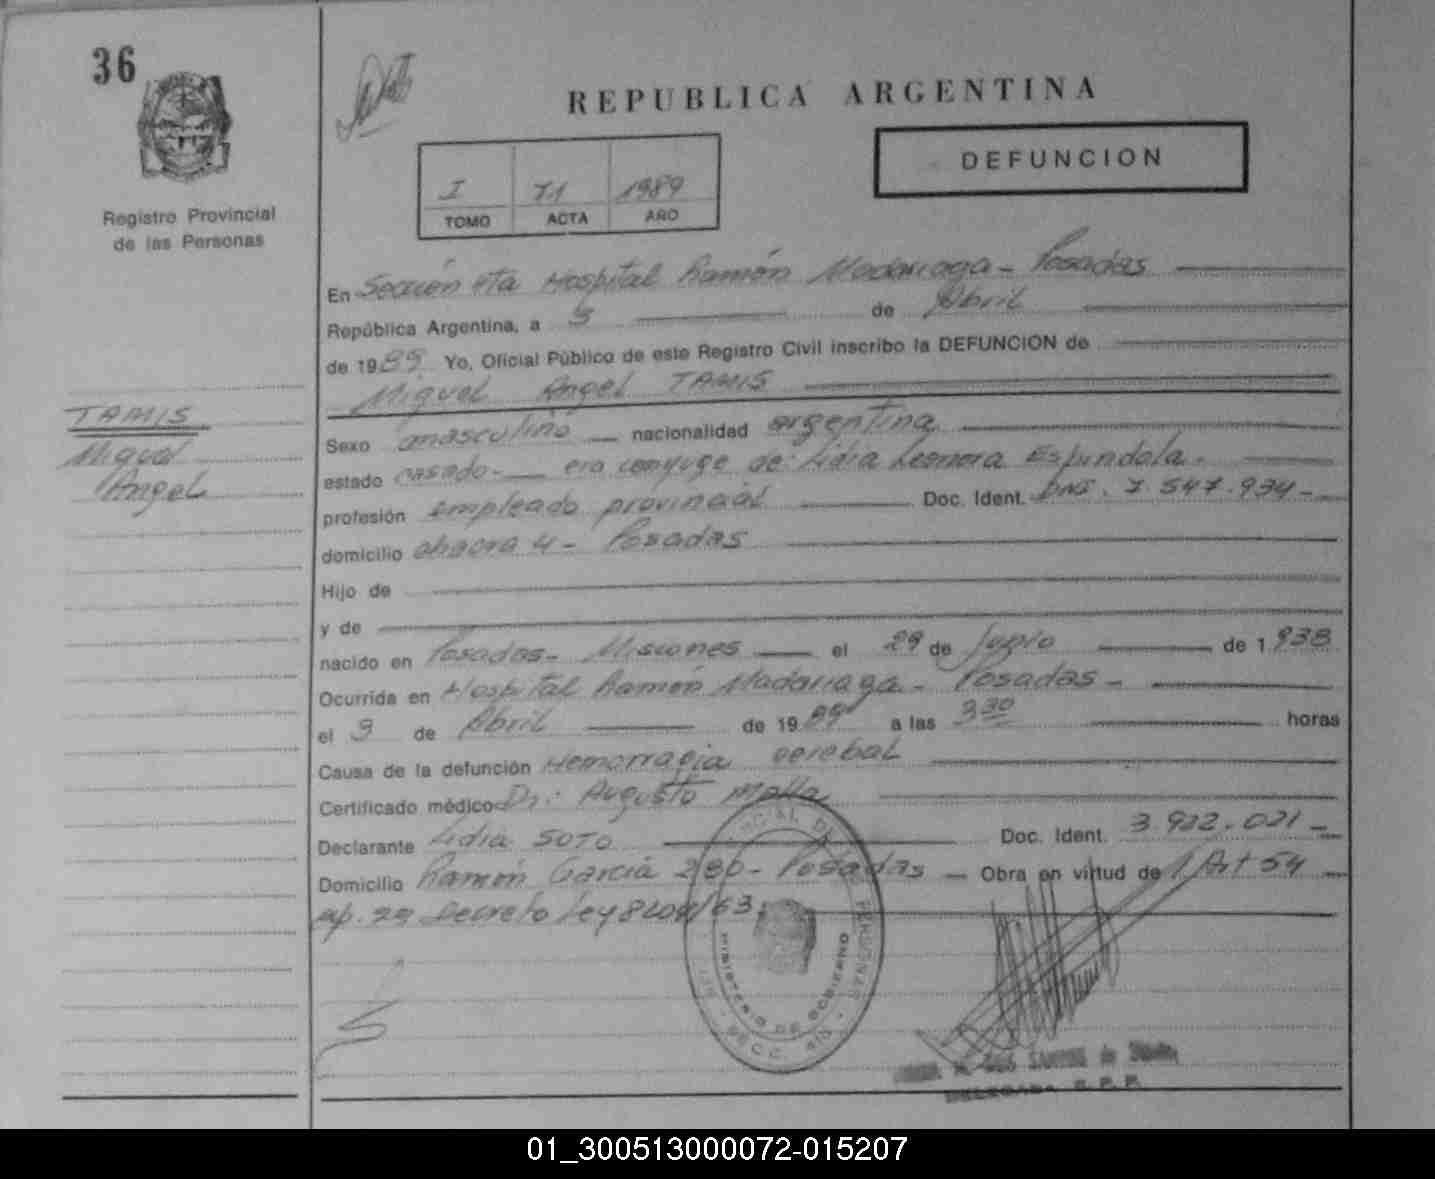 36
REPUBLICA ARGENTINA
DEFUNCION
I 71 1989
TOMO ACTA AÑO
Registro Provincial
de las Personas
En Sección 4ta Hospital Ramón Madariaga - Posadas
República Argentina, a 3 de Abril
de 1989 Yo, Oficial Público de este Registro Civil inscribo la DEFUNCION de
Miguel Angel TAMIS
TAMIS
Miguel
Angel
Sexo masculino nacionalidad argentina
estado casado - era conyuge de: Lidia Leonora Espindola.
profesión empleado provincial Doc. Ident. DNI. 7.547.934-
domicilio chacra 4 - Posadas
Hijo de
y de
nacido en Posadas - Misiones el 29 de Junio de 1.938
Ocurrida en Hospital Ramón Madariaga - Posadas -
el 3 de Abril de 1989 a las 3 30 horas
Causa de la defunción Hemorragia cerebal
Certificado médico Dr.: Augusto Molla
Declarante Lidia SOTO Doc. Ident. 3.922.021-
Domicilio Ramón Garcia 280 - Posadas - Obra en virtud de Art 54
ap. 2º Decreto Ley 8204/63.
MINISTERIO DE GOBIERNO
DOS SANTOS de
DELEGADA R. P. P.
01_300513000072-015207